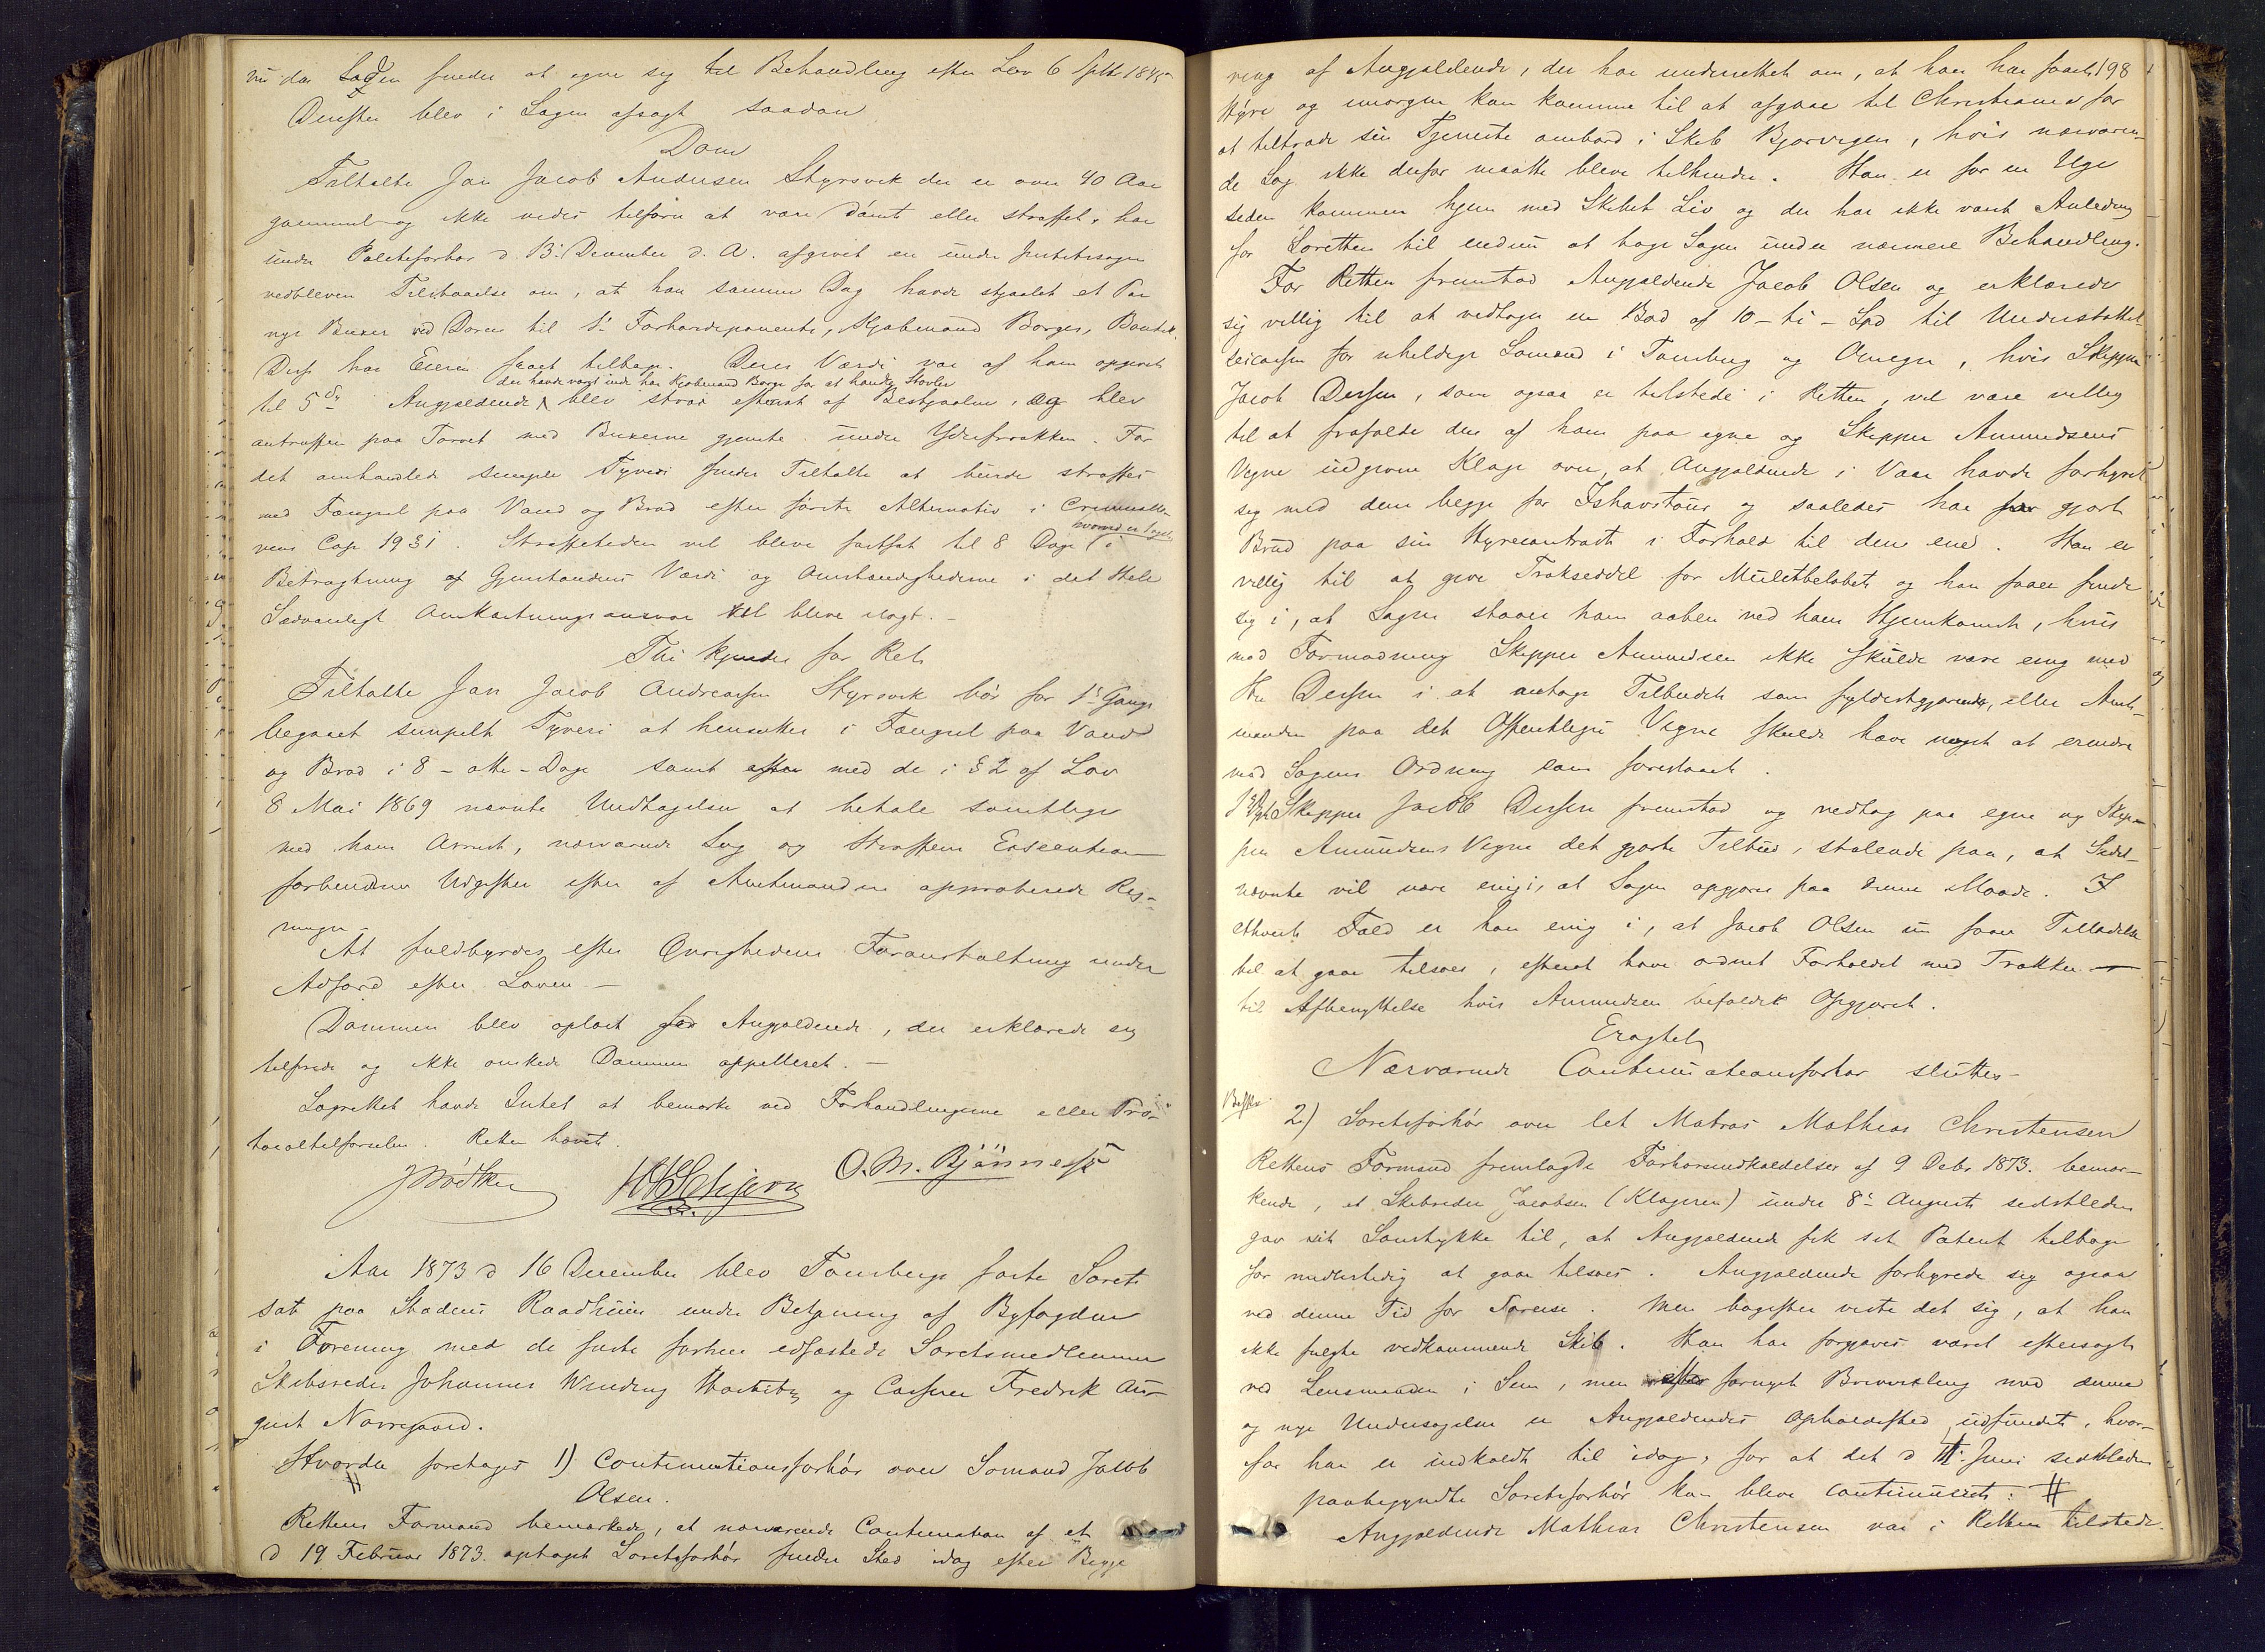 nu da Sagen findes at egne sig til Behandling efter Lov 6 Septbr 1845
Derefter blev i Sagen afsagt saadan
Dom
Tiltalte Jan Jacob Andersen Styrsvik der er over 40 Aar
gammel og ikke vides tilforn at være dömt eller straffet, har
under Politiforhør d. 13' December d. A. afgivet en under Justitssagen
vedbleven Tilstaaelse om, at han samme Dag havde stjaalet et Par
nye Buxer ved Døren til 1' Forhørdeponents, Kjøbmand Borges, Boutik.
Disse har Eieren faaet tilbage. Deres Værdi var af ham opgivet
der havde været inde hos Kjøbmand Borge for at handle Støvler
til 5 Angjældende blev strax eftersat af Bestjaalne, og blev
antruffen paa Torvet med Buxerne gjemte under Yderfrakken. For
det omhandlede simple Tyveri findes Tiltalte at burde straffes
med Fængsel paa Vand og Brød efter første Alternativ i Criminallo-
vens Cap 19 § 1. Straffetiden vil blive fastsat til 8 Dage i
hvorved er taget
Betragtning af Gjenstandens Værdi og Omstændighederne i det Hele
Sædvanligt Omkostningsansvar vil blive ilagt. –
Thi kjendes for Ret
Tiltalte Jan Jacob Andreassen Styrsvik bör for 1' Gang
begaaet simpelt Tyveri at hensættes i Fængsel paa Vand
og Brød i 8 – otte – Dage samt efter med de i § 2 af Lov
8 Mai 1869 nævnte Undtagelser at betale samtlige
med hans Arrest, nærværende Sag og Straffens Execution
forbundne Udgifter efter af Amtmanden approberede Reg-
ninger
At fuldbyrdes efter Øvrighedens Foranstaltning under
Adfærd efter Loven. –
Dommen blev oplæst for Angjældende, der erklærede sig
tilfreds og ikke ønskede Dommen appelleret. –
Lagrettet havde Intet at bemærke ved Forhandlingerne eller Pro-
tocoltilførselen. Retten hævet.
O. M. Bjönness
Aar 1873 d 16 December blev Tønsbergs faste Søret
sat paa Stadens Raadhuus under Betjening af Byfogden
i Forening med de faste forhen edfæstede Søretsmedlemmer
Skibsreder Johannes Winding og Capt. Fredrik Au-
gust Nørregaard.
Hvorda foretages 1) Continuationsforhör over Sømand Jacob
Olsen.
Rettens Formand bemærkede, at nærværende Continuation af et
d 19 Februar 1873 optaget Søretsforhör finder Sted idag efter Begje-
198
ring af Angjældende, der har underrettet om, at han har faaet
Hyre og imorgen kan komme til at afgaae til Christiania for
at tiltræde sin Tjeneste ombord i Skib Bjørvigen, hvis nærværen-
de Sag ikke derfor maatte blive tilhinder. Han er for en Uge
siden kommen hjem med Skibet Liv og der har ikke været Anledning
for Søretten til endnu at tage Sagen under nærmere Behandling.
For Retten fremstod Angjældende Jacob Olsen og erklærede
sig villig til at vedtage en Bod af 10 – ti – Spd til Understøttel-
seicassen for uheldige Sømænd i Tønsberg og Omegn, hvis Skipper
Jacob Dessen, som ogsaa er tilstede i Retten, vil være villig
til at frafalde den af ham paa egne og Skipper Amundsens
Vegne indgivne Klage over, at Angjældende i Vaar havde forhyret
sig med dem begge for Ishavstour og saaledes har gjort
Brud paa sin Hyrecontract i Forhold til den ene. Han er
villig til at give Trækseddel for Mulctbeløbet og han faaer finde
sig i, at Sagen staaer ham aaben ved hans Hjemkomst, hvis
mod Formodning Skipper Amundsen ikke skulde være enig med
Hr Dessen i at antage Tilbudet som fyldestgjørende, eller Amt-
manden paa det Offentliges Vegne skulde have noget at erindre
mod Sagens Ordning som foreslaaet.
Skipper Jacob Dessen fremstod og vedtog paa egne og Skip-
per Amundsens Vegne det gjorte Tilbud, stolende paa, at Sidst-
nævnte vil være enig i, at Sagen opgjøres paa denne Maade. I
ethvert Fald er han enig i, at Jacob Olsen nu faaer Tilladelse
til at gaae tilsøes, efterat have ordnet Forholdet med Trækket
til Afbenyttelse hvis Amundsen bifalder Opgjøret.
Eragtet
Nærværende Continuationsforhør sluttes –
2) Søretsforhör over let Matros Mathias Christensen
Rettens Formand fremlagde Forhørsindkaldelser af 9 Debr 1873. bemær-
kende, at Skibsreder Jacobsen (Klageren) under 8' August sidstleden
gav sit Samtykke til, at Angjældende fik sit Patent tilbage
for midlertidig at gaae tilsøes. Angjældende forhyrede sig ogsaa
ved denne Tid for Søreise. Men bagefter viste det sig, at han
ikke fulgte vedkommende Skib. Han har forgjæves været eftersøgt
ved Lensmanden i Sem, men efter fornyet Brevvexling med denne
og nye Undersøgelser er Angjældendes Opholdssted udfundet, hvor-
for han er indkaldt til idag, for at det d Juni sidstleden
paabegyndte Søretsforhör kan blive continueret: #
Angjældende Mathias Christensen var i Retten tilstede.